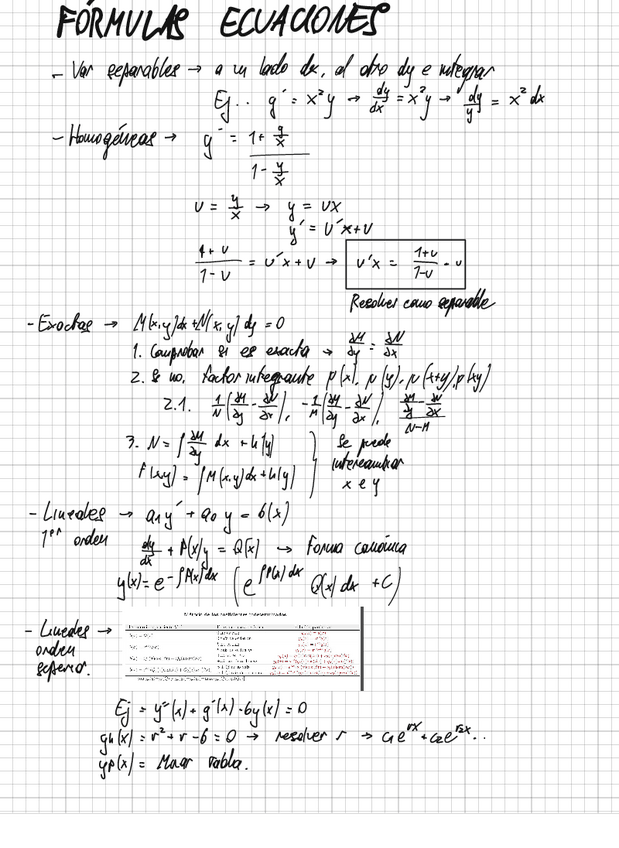 FÓRMULAS ECUACIONES
- Var separables → a un lado dx, al otro dy e integrar
Ej.. y´ = x²y → dy/dx = x²y → dy/y = x² dx
- Homogéneas → y´ = (1 + y/x) / (1 - y/x)
U = y/x → y = UX
y´ = U´x+U
(1+U)/(1-U) = U´x + U → U´x = (1+U)/(1-U) - U
Resolver como separable
- Exactas → M(x,y)dx+N(x,y)dy = 0
1. Comprobar si es exacta → ∂M/∂y = ∂N/∂x
2. Si no, factor integrante μ(x), μ(y), μ(x+y), μ(xy)
2.1. 1/N (∂M/∂y - ∂N/∂x), -1/M (∂M/∂y - ∂N/∂x), (∂M/∂y - ∂N/∂x)/(N-M)
3. N = ∫ ∂M/∂y dx + h´(y)
F(x,y) = ∫M(x,y)dx + h(y)
Se puede
intercambiar
x e y
- Lineales → a₁y´ + a₀y = b(x)
1er orden
dy/dx + P(x)y = Q(x) → Forma canónica
y(x) = e^-∫P(x)dx (e^∫P(x)dx Q(x)dx + C)
- Lineales →
orden
superior.
Ej = y´´(x) + y´(x) - 6y(x) = 0
yh(x) = r² + r - 6 = 0 → resolver r → c₁e^rx + c₂e^r2x..
yp(x) = Mirar tabla.